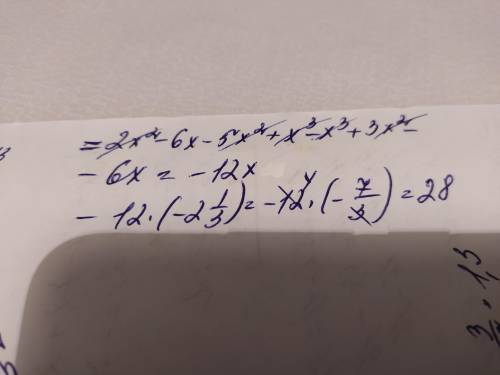 = 2x² - 6x - 5x² + x³ - x³ + 3x² -
- 6x = -12x
- 12 · (-2 1/3) = -12 · (- 7/3) = 28